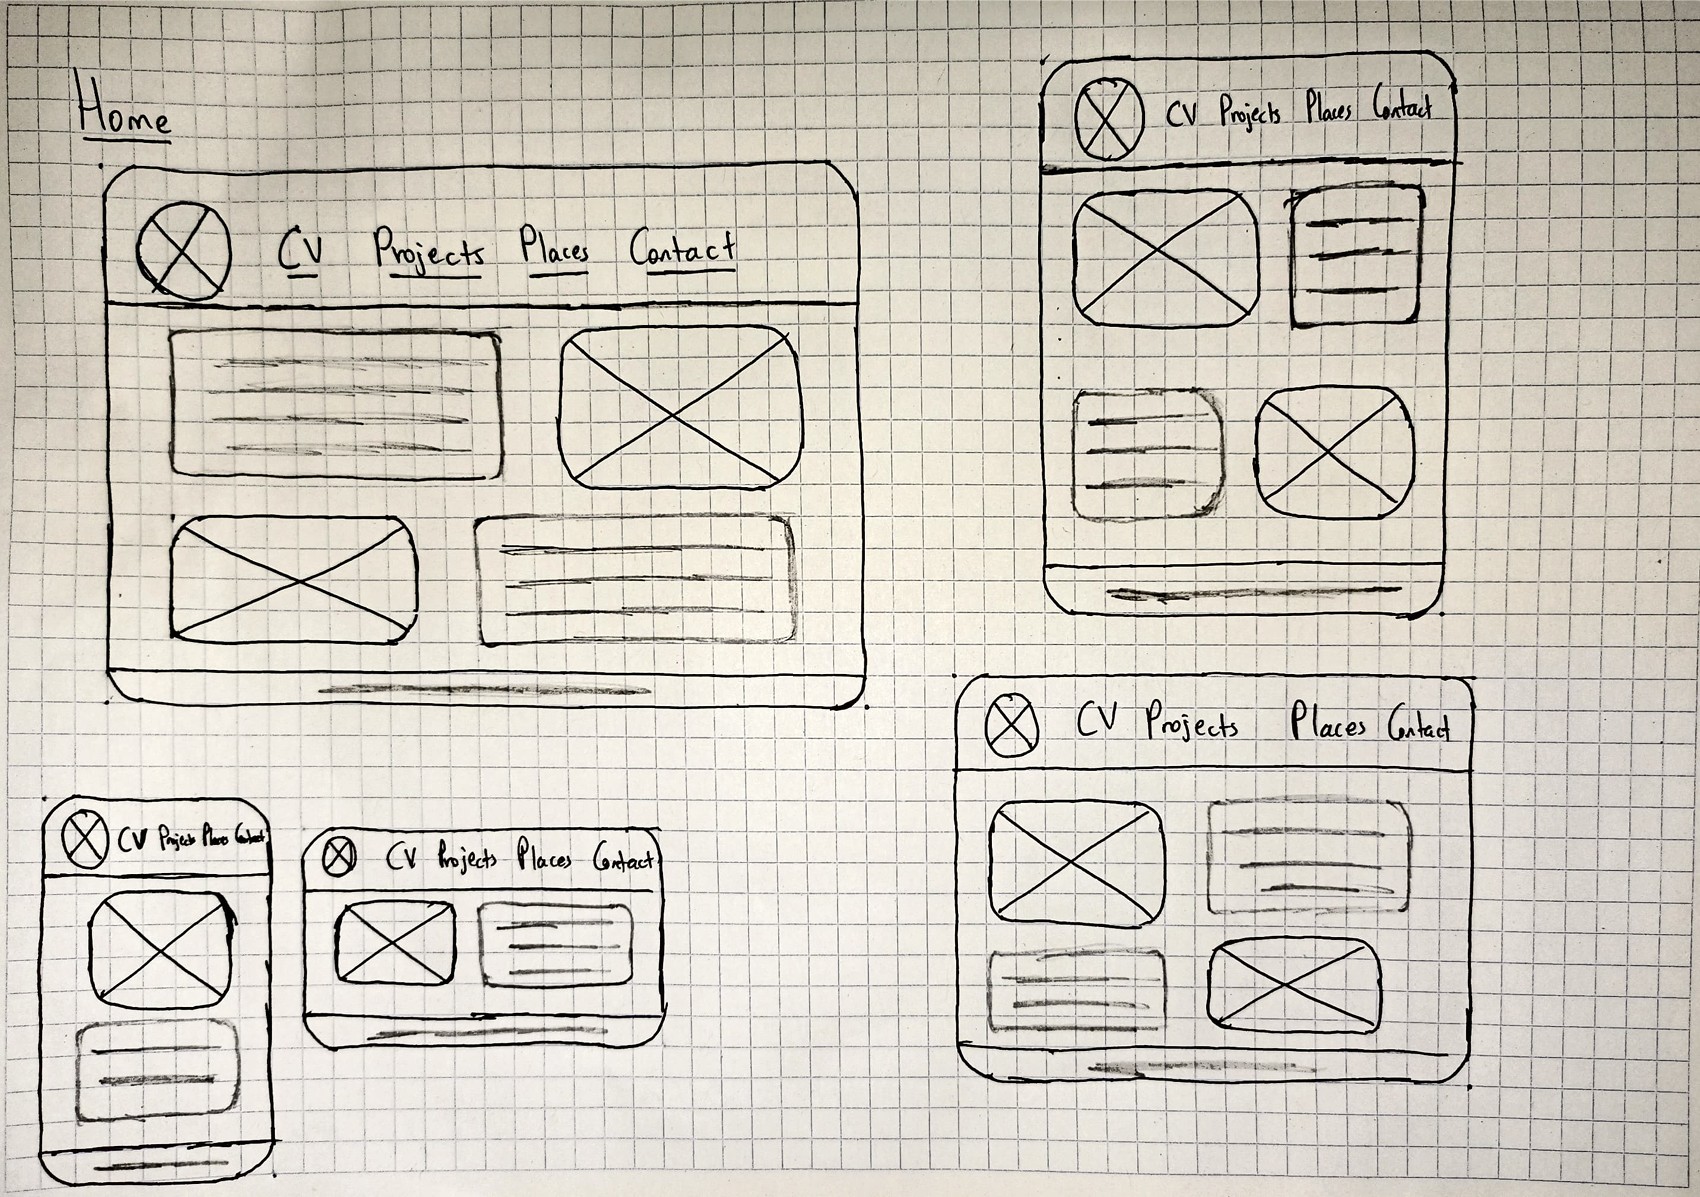 Home
CV Projects Places Contact
CV Projects Places Contact
CV Projects Places Contact
CV Projects Places Contact
CV Projects Places Contact